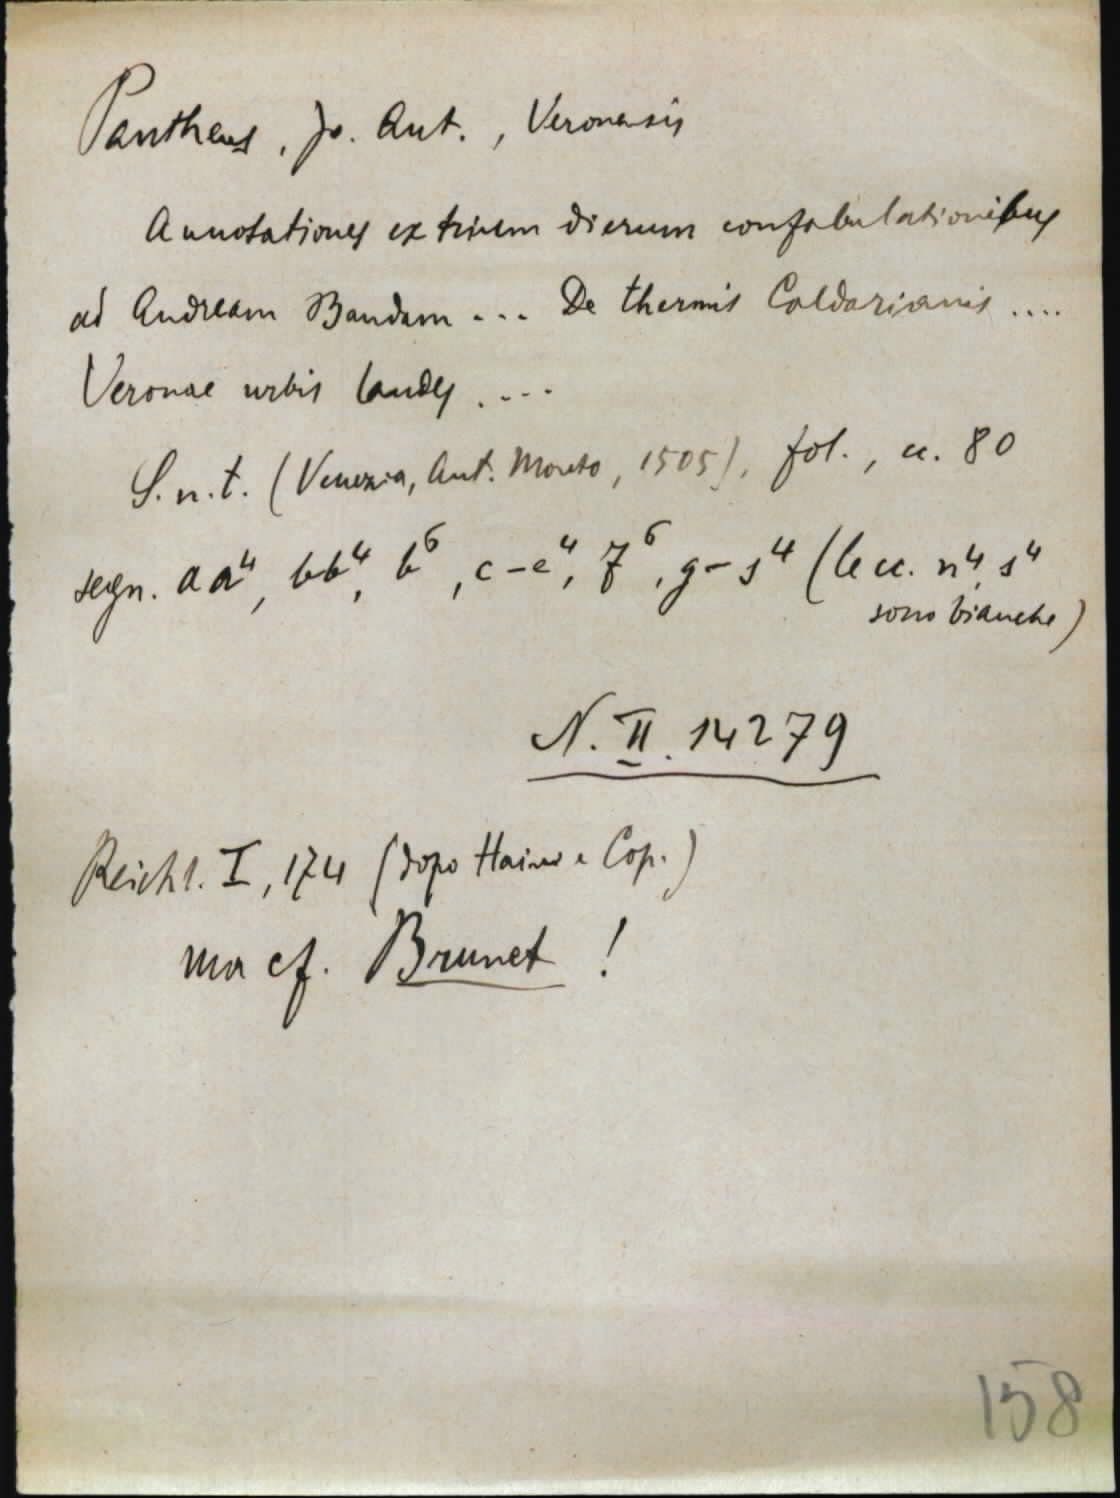 Pantheus, Jo. Ant., Veronensis
Annotationes ex trium dierum confabulationibus
ad Andream Bandam ... De thermis Caldarianis ....
Veronae urbis laudes ....
S. n. t. (Venezia, Ant. Moreto, 1505), fol., cc. 80
segn. aa⁴, bb⁴, b⁶, c-e⁴, f⁶, g-s⁴ (le cc. n⁴, s⁴
sono bianche)
N. II. 14279
Reichl. I, 174 (dopo Hain e Cop.)
ma cf. Brunet !
158